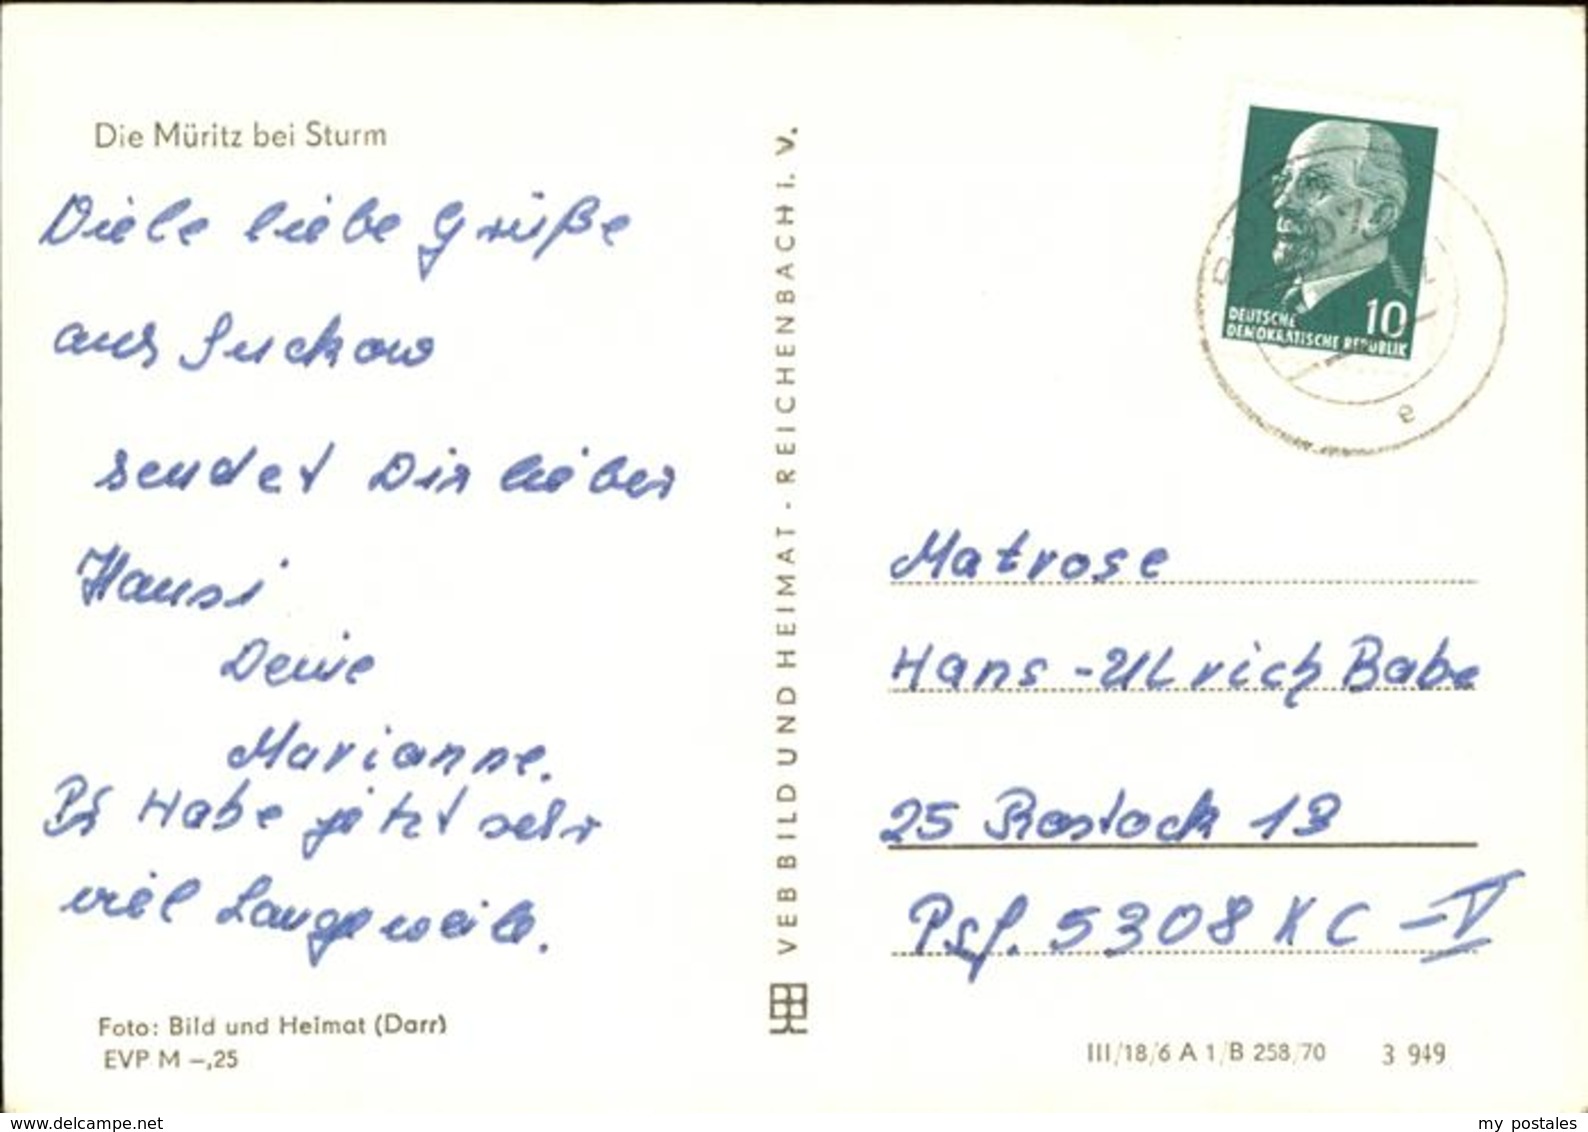 Die Müritz bei Sturm
Viele liebe Grüße
aus Suckow
sendet Dir lieber
Hansi
Deine
Marianne.
PS Habe jetzt sehr
viel Langeweile.
Foto: Bild und Heimat (Darr)
EVP M –,25
VEB BILD UND HEIMAT · REICHENBACH I. V.
10
DEUTSCHE
DEMOKRATISCHE REPUBLIK
e
Matrose
Hans-Ulrich Babe
25 Rostock 13
Psf. 5308 KC –V
III/18/6 A 1/B 258/70 3 949
www.delcampe.net
my postales